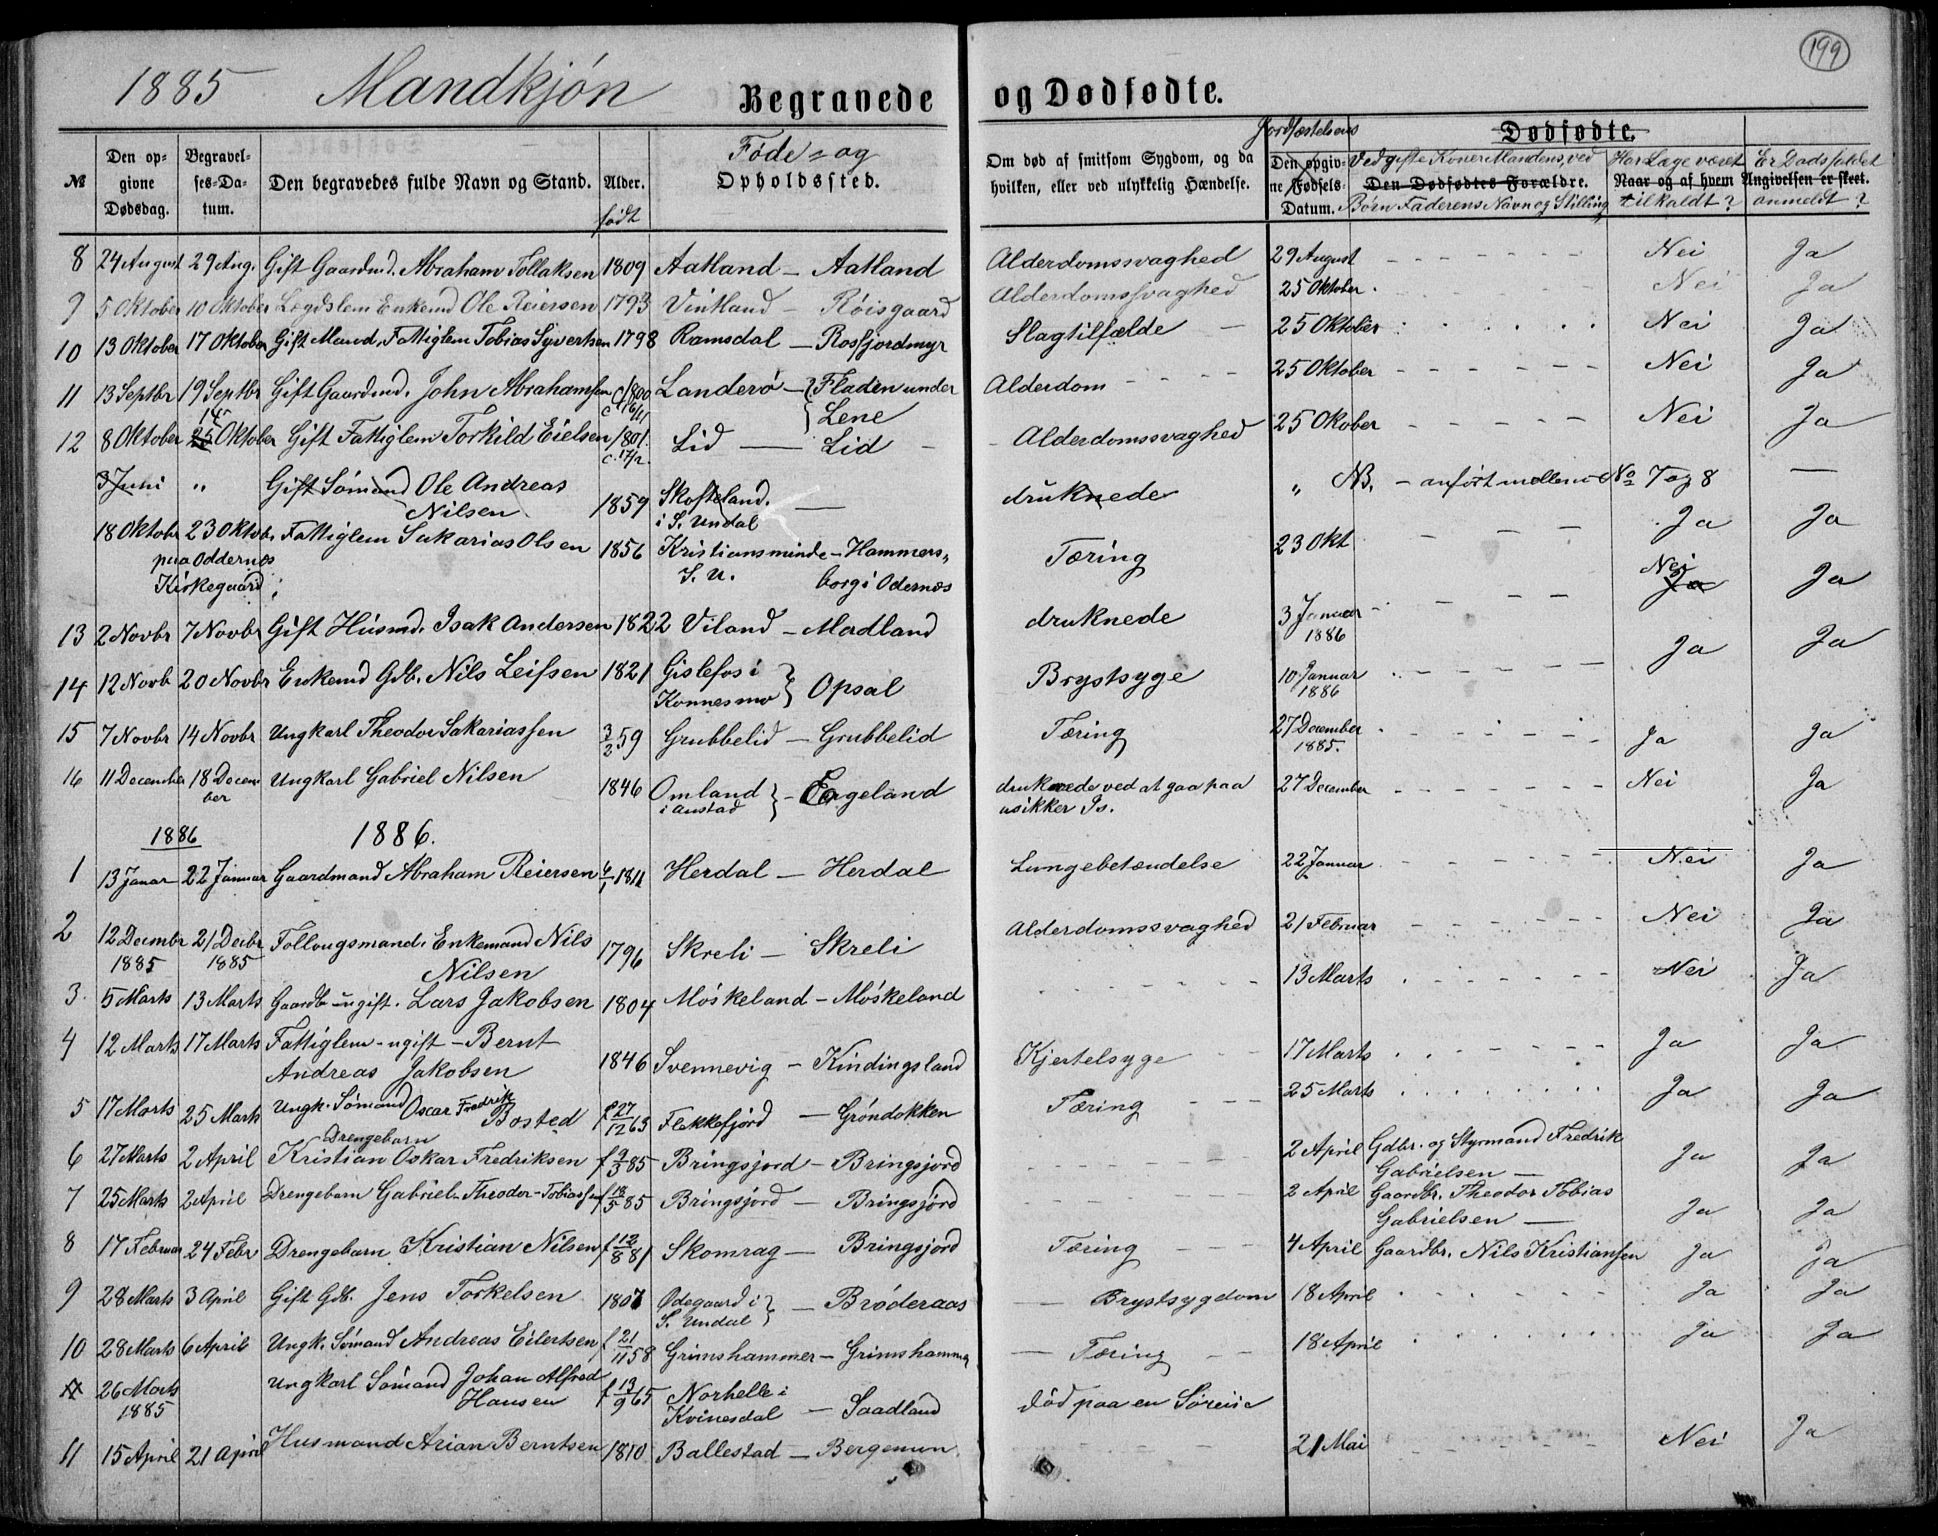 199
1885 Mandkjøn Begravede og Dødfødte.
Jordfæstelsens Dødfødte.
№ Den opgivne Dødsdag. Begravelses-Datum. Den begravedes fulde Navn og Stand. Alder. født Føde- og Opholdssted. Om død af smitsom Sygdom, og da hvilken, eller ved ulykkelig Hændelse. Den opgivne Fødsels-Datum. Ved gifte Koner Mandens, ved Børn Faderens Navn og Stilling Den Dødfødtes Forældre. Har Læge været tilkaldt? Naar og af hvem Er Dødsfaldet anmeldt? Angivelsen er skeet.
8 24 August 29 Aug. Gift Gaardmd. Abraham Tollaksen 1809 Aatland – Aatland Alderdomssvaghed 29 August Nei Ja
9 5 Oktober 10 Oktober Legdslem Enkemd Ole Reiersen 1793 Vintland – Røisgaard Alderdomssvaghed 25 Oktober. Nei Ja
10 13 Oktober 17 Oktober Gift Mand, Fattiglem Tobias Syvertsen 1798 Ramsdal – Rosfjordmyr Slagtilfælde – 25 Oktober Nei Ja
11 13 Septbr 19 Septbr Gift Gaardmd. John Abrahamsen c 1800 Landerø – Fladen under Alderdom 25 Oktober Nei Ja
c 16/11 Lene
12 8 Oktober 14 25 Oktober Gift Fattiglem Torkild Eielsen 1801. Lid – Lid – Alderdomssvaghed 25 Okober Nei Ja
c. 17/2.
3 Juni „ Gift Sømand Ole Andreas
Nilsen 1859 Skofteland. i S. Undal – druknede „ NB. – anført mellem No 7 og 8 –
18 Oktobr 23 Oktob. Fattiglem Sakarias Olsen 1856 Kristiansminde – Hammers- Tæring 23 Okt Ja Ja
paa Oddernes S. U. borg i Odernæs
Kirkegaard;
13 2 Novbr 7 Novbr Gift Husmd. Isak Andersen 1822 Viland – Madland druknede 3 Januar 1886 Nei Ja Ja
14 12 Novb 20 Novbr Enkemd Gdb. Nils Leifsen 1821 Gislefos i Konnesmo Opsal Brystsyge 10 Januar 1886 Ja Ja
15 7 Novbr 14 Novbr Ungkarl Theodor Sakariassen 3/2 59 Grubbelid – Grubbelid Tæring 27 December 1885. Ja Ja
16 11 December 18 December Ungkarl Gabriel Nilsen 1846 Omland i Austad – Ergeland druknede ved at gaa paa usikker Is. 27 December Nei Ja
1886 1886.
1 13 Januar 22 Januar Gaardmand Abraham Reiersen 1811 Herdal – Herdal Lungebetændelse 22 Januar Nei Ja
2 12 Decmbr 1885 21 Decbr 1885 Follougsmand. Enkemand Nils
Nilsen 1796 Skreli – Skreli Alderdomssvaghed 21 Februar Nei Ja
3. 5 Marts 13 Marts Gaardb ugift. Lars Jakobsen 1804 Møskeland – Møskeland 13 Marts Nei Ja
4 12 Marts 17 Marts Fattiglem – ugift – Bernt
Andreas Jakobsen 1846 Svennevig – Kindingsland Kjertelsyge 17 Marts Ja Ja
5 17 Marts 25 Marts Ungk. Sømand Oscar Fredrik
Bosted f 27/12 63 Flekkefjord – Grøndokken Tæring 25 Marts Ja Ja
6 27 Marts 2 April Drengebarn Kristian Oskar Fredriksen f 9/3 85 Bringsjord – Bringsjord 2 April Gdbr. og Styrmand Fredrik
Gabrielsen – Ja Ja
7 25 Marts 2 April Drengebarn Gabriel Theodor Tobiassen f 18/5 85 Bringsjord – Bringsjord 2 April Gaardbr. Theodor Tobias
Gabrielsen – Ja Ja
8 17 Februar 24 Febr Drengebarn Kristian Nilsen f 12/8 81 Skomrag – Bringsjord Tæring 4 April Gaardbr. Nils Kristiansen Ja Ja
9 28 Marts 3 April Gift Gdb. Jens Torkelsen 1807 Ødegaard i S. Undal – Brøderaas – Brystsygdom 18 April Ja Ja
10 28 Marts 6 April Ungk. Sømand Andreas Eilertsen f 21/11 58 Grimshammer – Grimshammer – Tæring 18 April Ja Ja
26 Marts 1885 Ungkarl Sømand Johan Alfred
Hansen f 13/9 65 Norhelle i Kvinesdal – Saadland død paa en Søreise
11 15 April 21 April Husmand Arian Berntsen 1810 Ballestad – Bergemun. 21 Mai Nei Ja